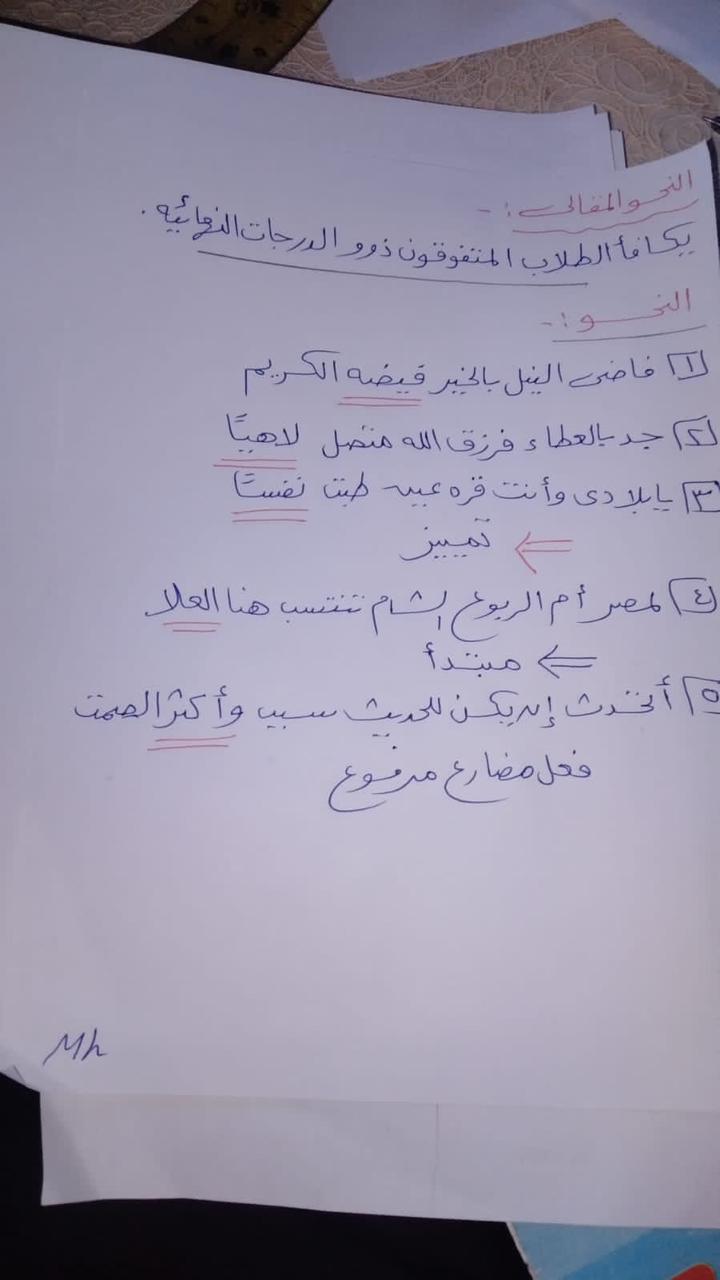 النحو المقالى :-
يكافأ الطلاب المتفوقون ذوو الدرجات النهائيه .
النحو :-
١ فاضى النيل بالخير فيضه الكريم
٢ جد بالعطاء فرزق الله متصل لاهيًا
٣ يا بلادى وأنت قره عينى طبت نفسًا
تمييز
٤ لمصر أم الربوع الشام تنتسب هنا العلا
مبتدأ
٥ أتحدث إن يكن للحديث سبب وأكثر الصمت
فعل مضارع مرفوع
Mh